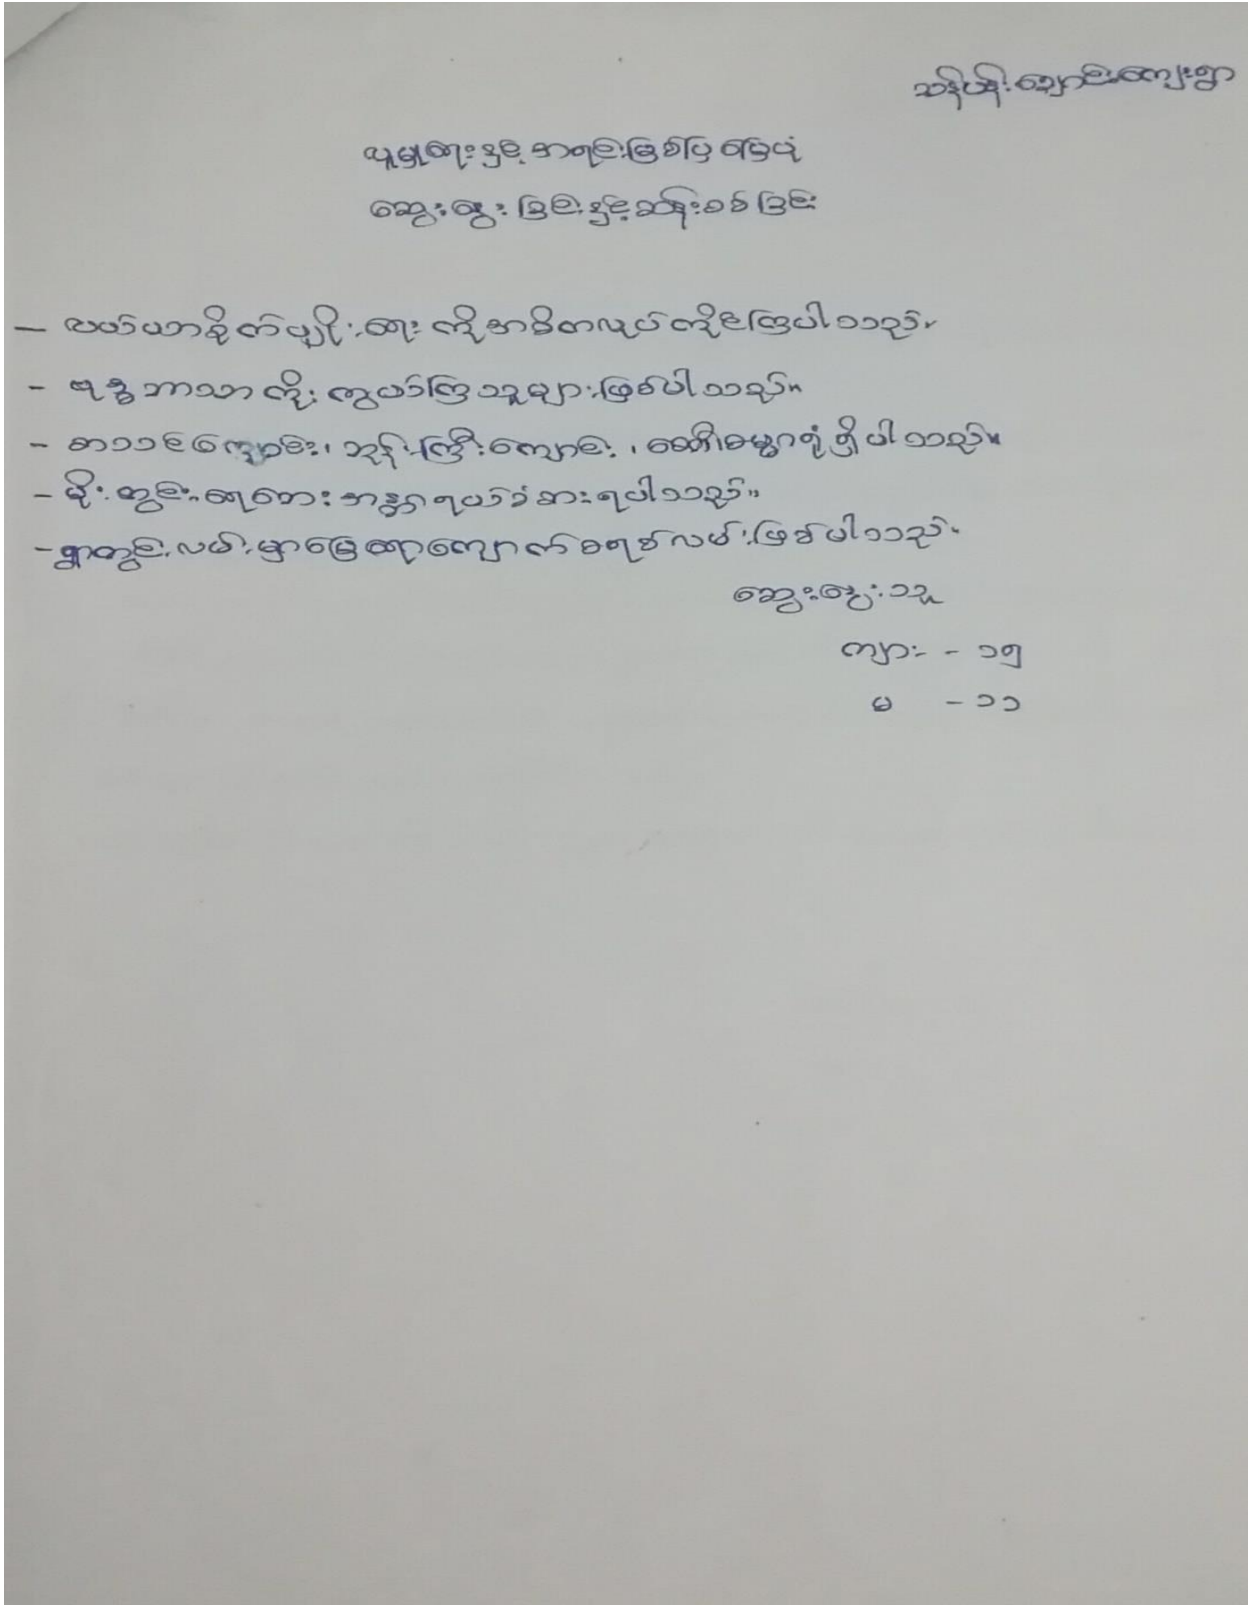 ဆန်ပန်းချောင်းကျေးရွာ
လူမှုရေးနှင့် အရင်းမြစ်ပြ မြေပုံ
ဆွေးနွေးခြင်းနှင့်ဆန်းစစ်ခြင်း
– လယ်ယာစိုက်ပျိုးရေး ကိုအဓိကလုပ်ကိုင်ကြပါသည်။
- ဗုဒ္ဓဘာသာ ကိုးကွယ်ကြသူများဖြစ်ပါသည်။
- စာသင်ကျောင်း၊ ဘုန်းကြီးကျောင်း၊ စေတီ၊ ဓမ္မာရုံရှိပါသည်။
- မိုးတွင်းရေဘေးအန္တရာယ်ခံစားရပါသည်။
- ရွာတွင်းလမ်းမှာမြေသားကျောက်စရစ်လမ်းဖြစ်ပါသည်။
ဆွေးနွေးသူ
ကျား - ၁၅
မ - ၁၁